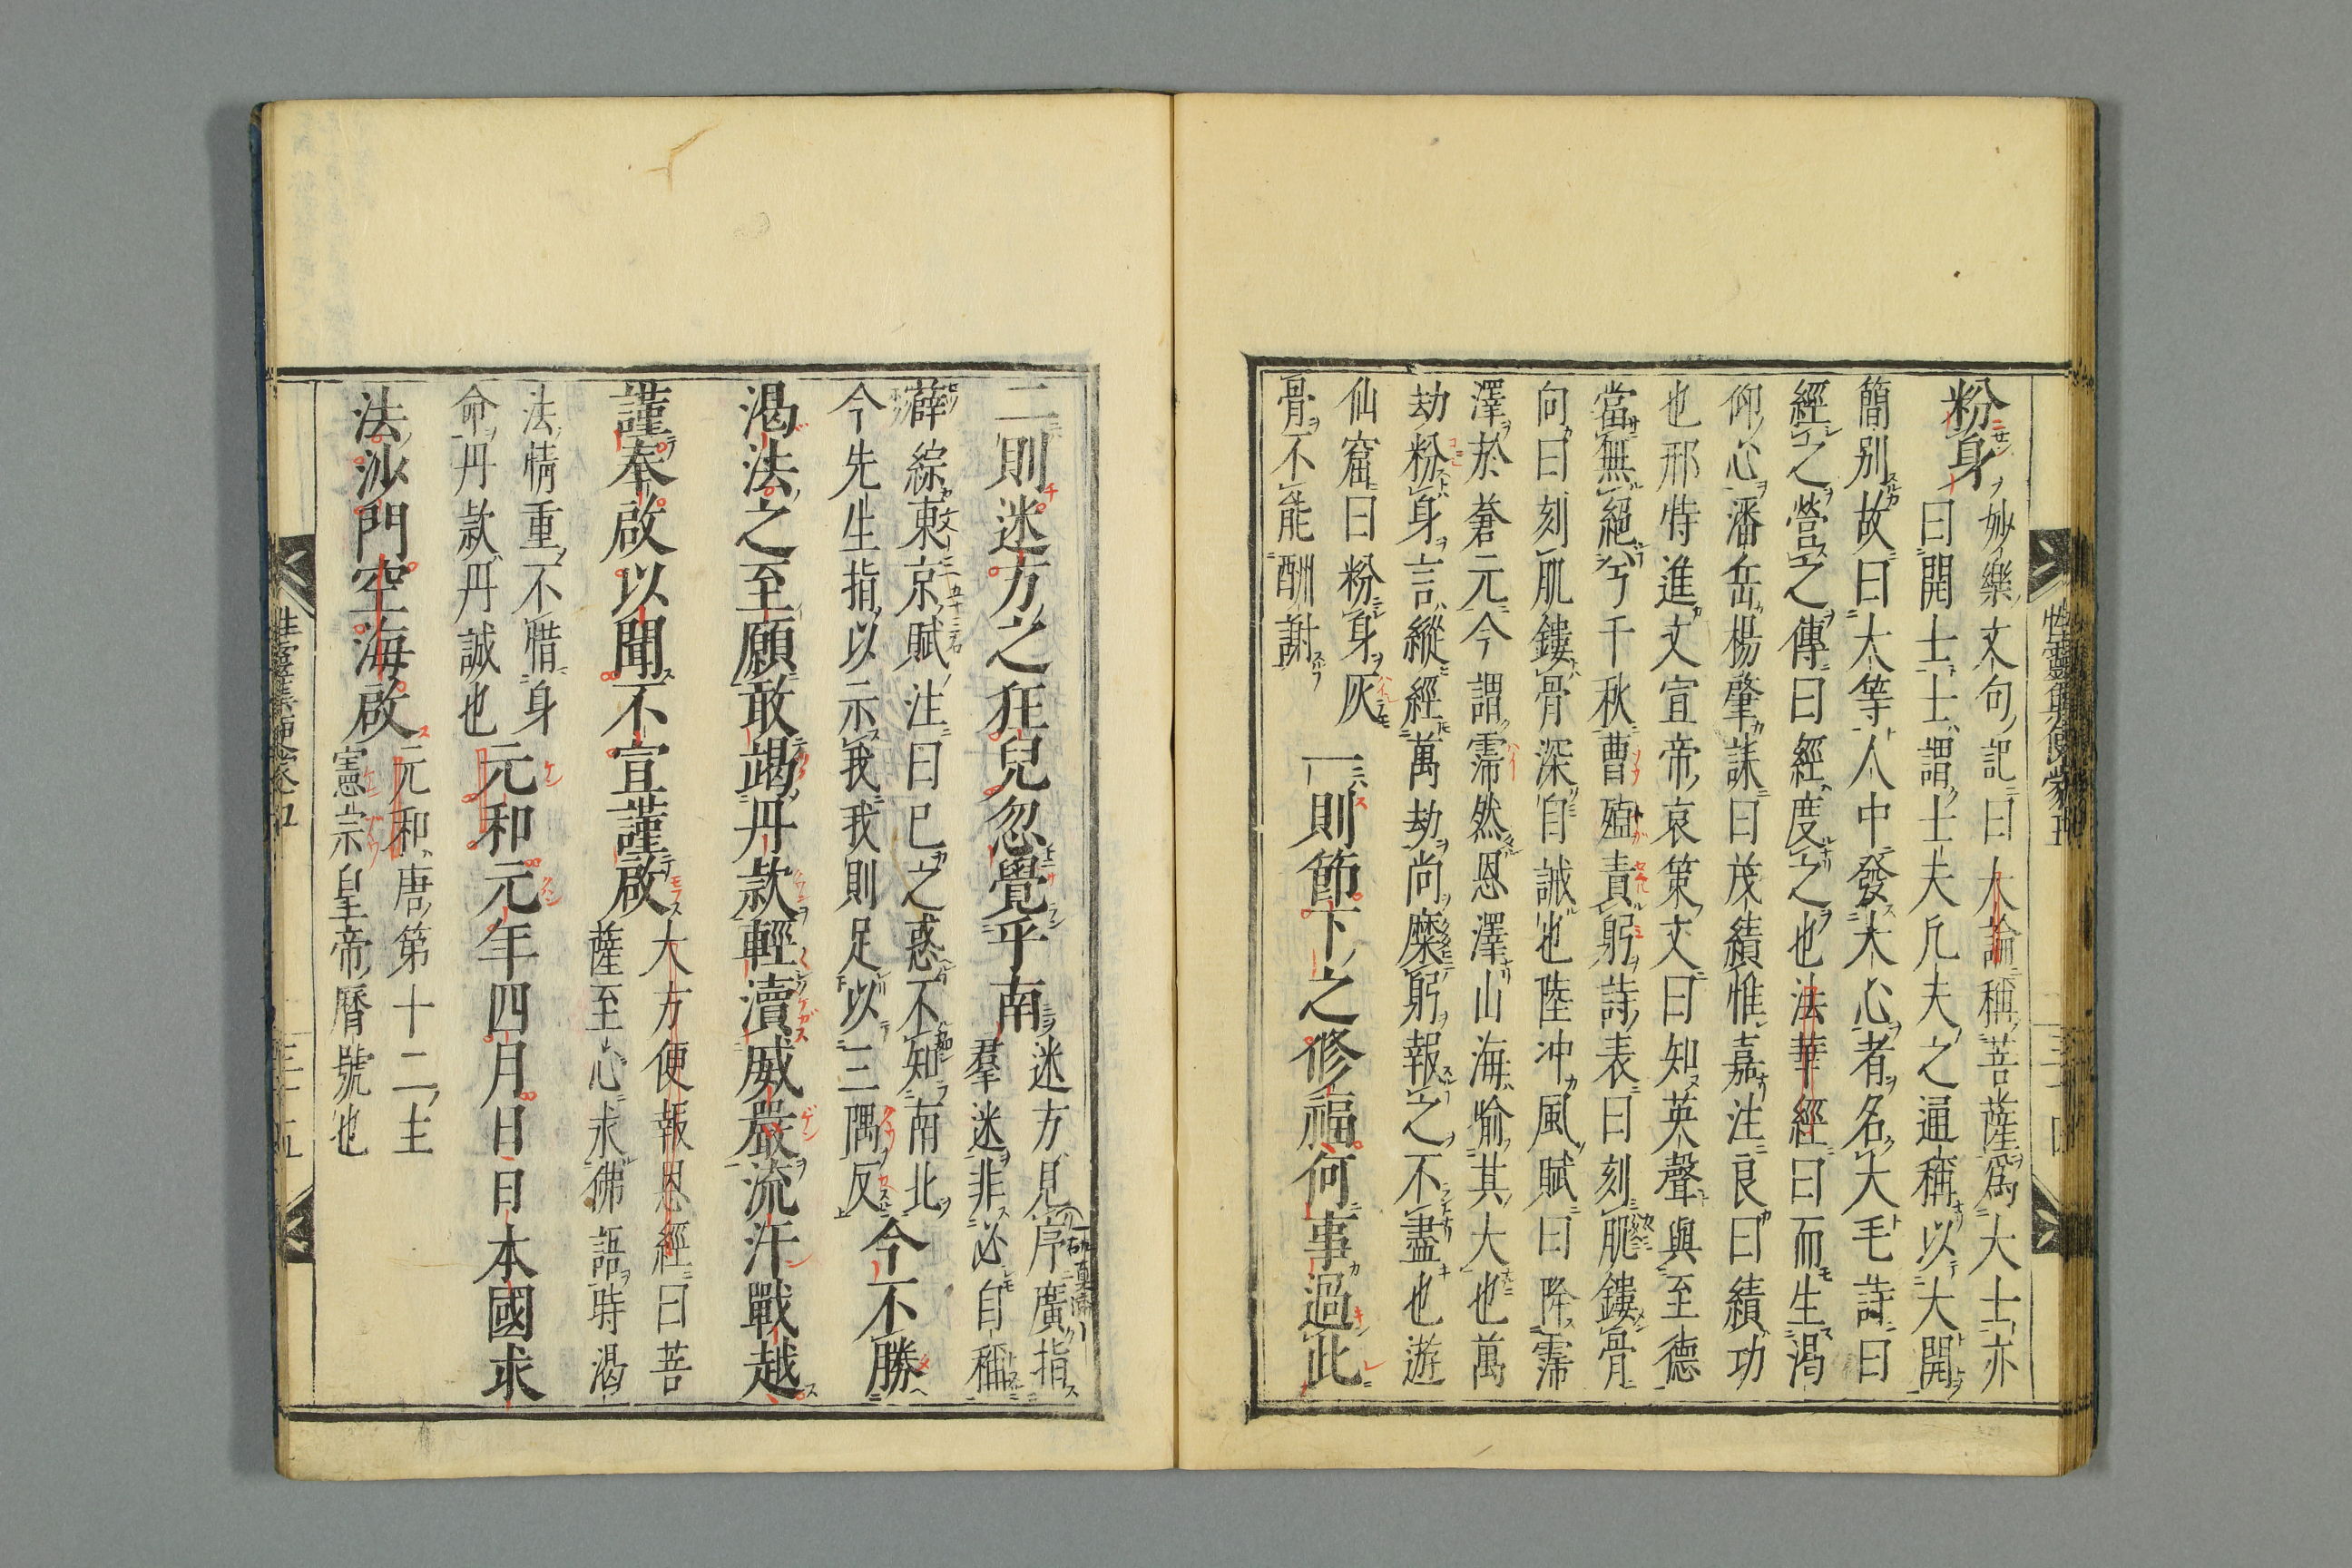 粉身妙樂文句記曰大論稱菩薩爲大士亦
曰開士士謂士夫凡夫之通稱以大開
簡別故曰大等人中發大心者名大毛詩曰
經之營之傳曰經度之也法華經曰而生渇
仰心潘岳楊肇誄曰茂績惟嘉注良曰績功
也邢特進文宣帝哀策文曰知英聲與至德
當無絕兮千秋曹殖責躬詩表曰刻肌鏤骨
向曰刻肌鏤骨深自誡也陸冲風賦曰降霈
澤於蒼元今謂霈然恩澤山海喻其大也萬
劫粉身言縱經萬劫尚糜躬報之不盡也遊
仙窟曰粉身灰
骨不能酬謝
一則節下之修福何事過此
二則迷方之狂兒忽覺乎南
迷方見序廣指
羣迷非必自稱
薛綜東京賦注曰已之惑不知南北
今先生指以示我我則足以三隅反
今不勝
渴法之至願敢竭丹款輕瀆威嚴流汗戰越
謹奉啟以聞不宣謹啟
大方便報恩經曰菩
薩至心求佛語時渴
法情重不惜身
命丹款丹誠也
元和元年四月日日本國求
法沙門空海啟
元和唐第十二主
憲宗皇帝曆號也
性靈集便蒙五
三十四
三十五